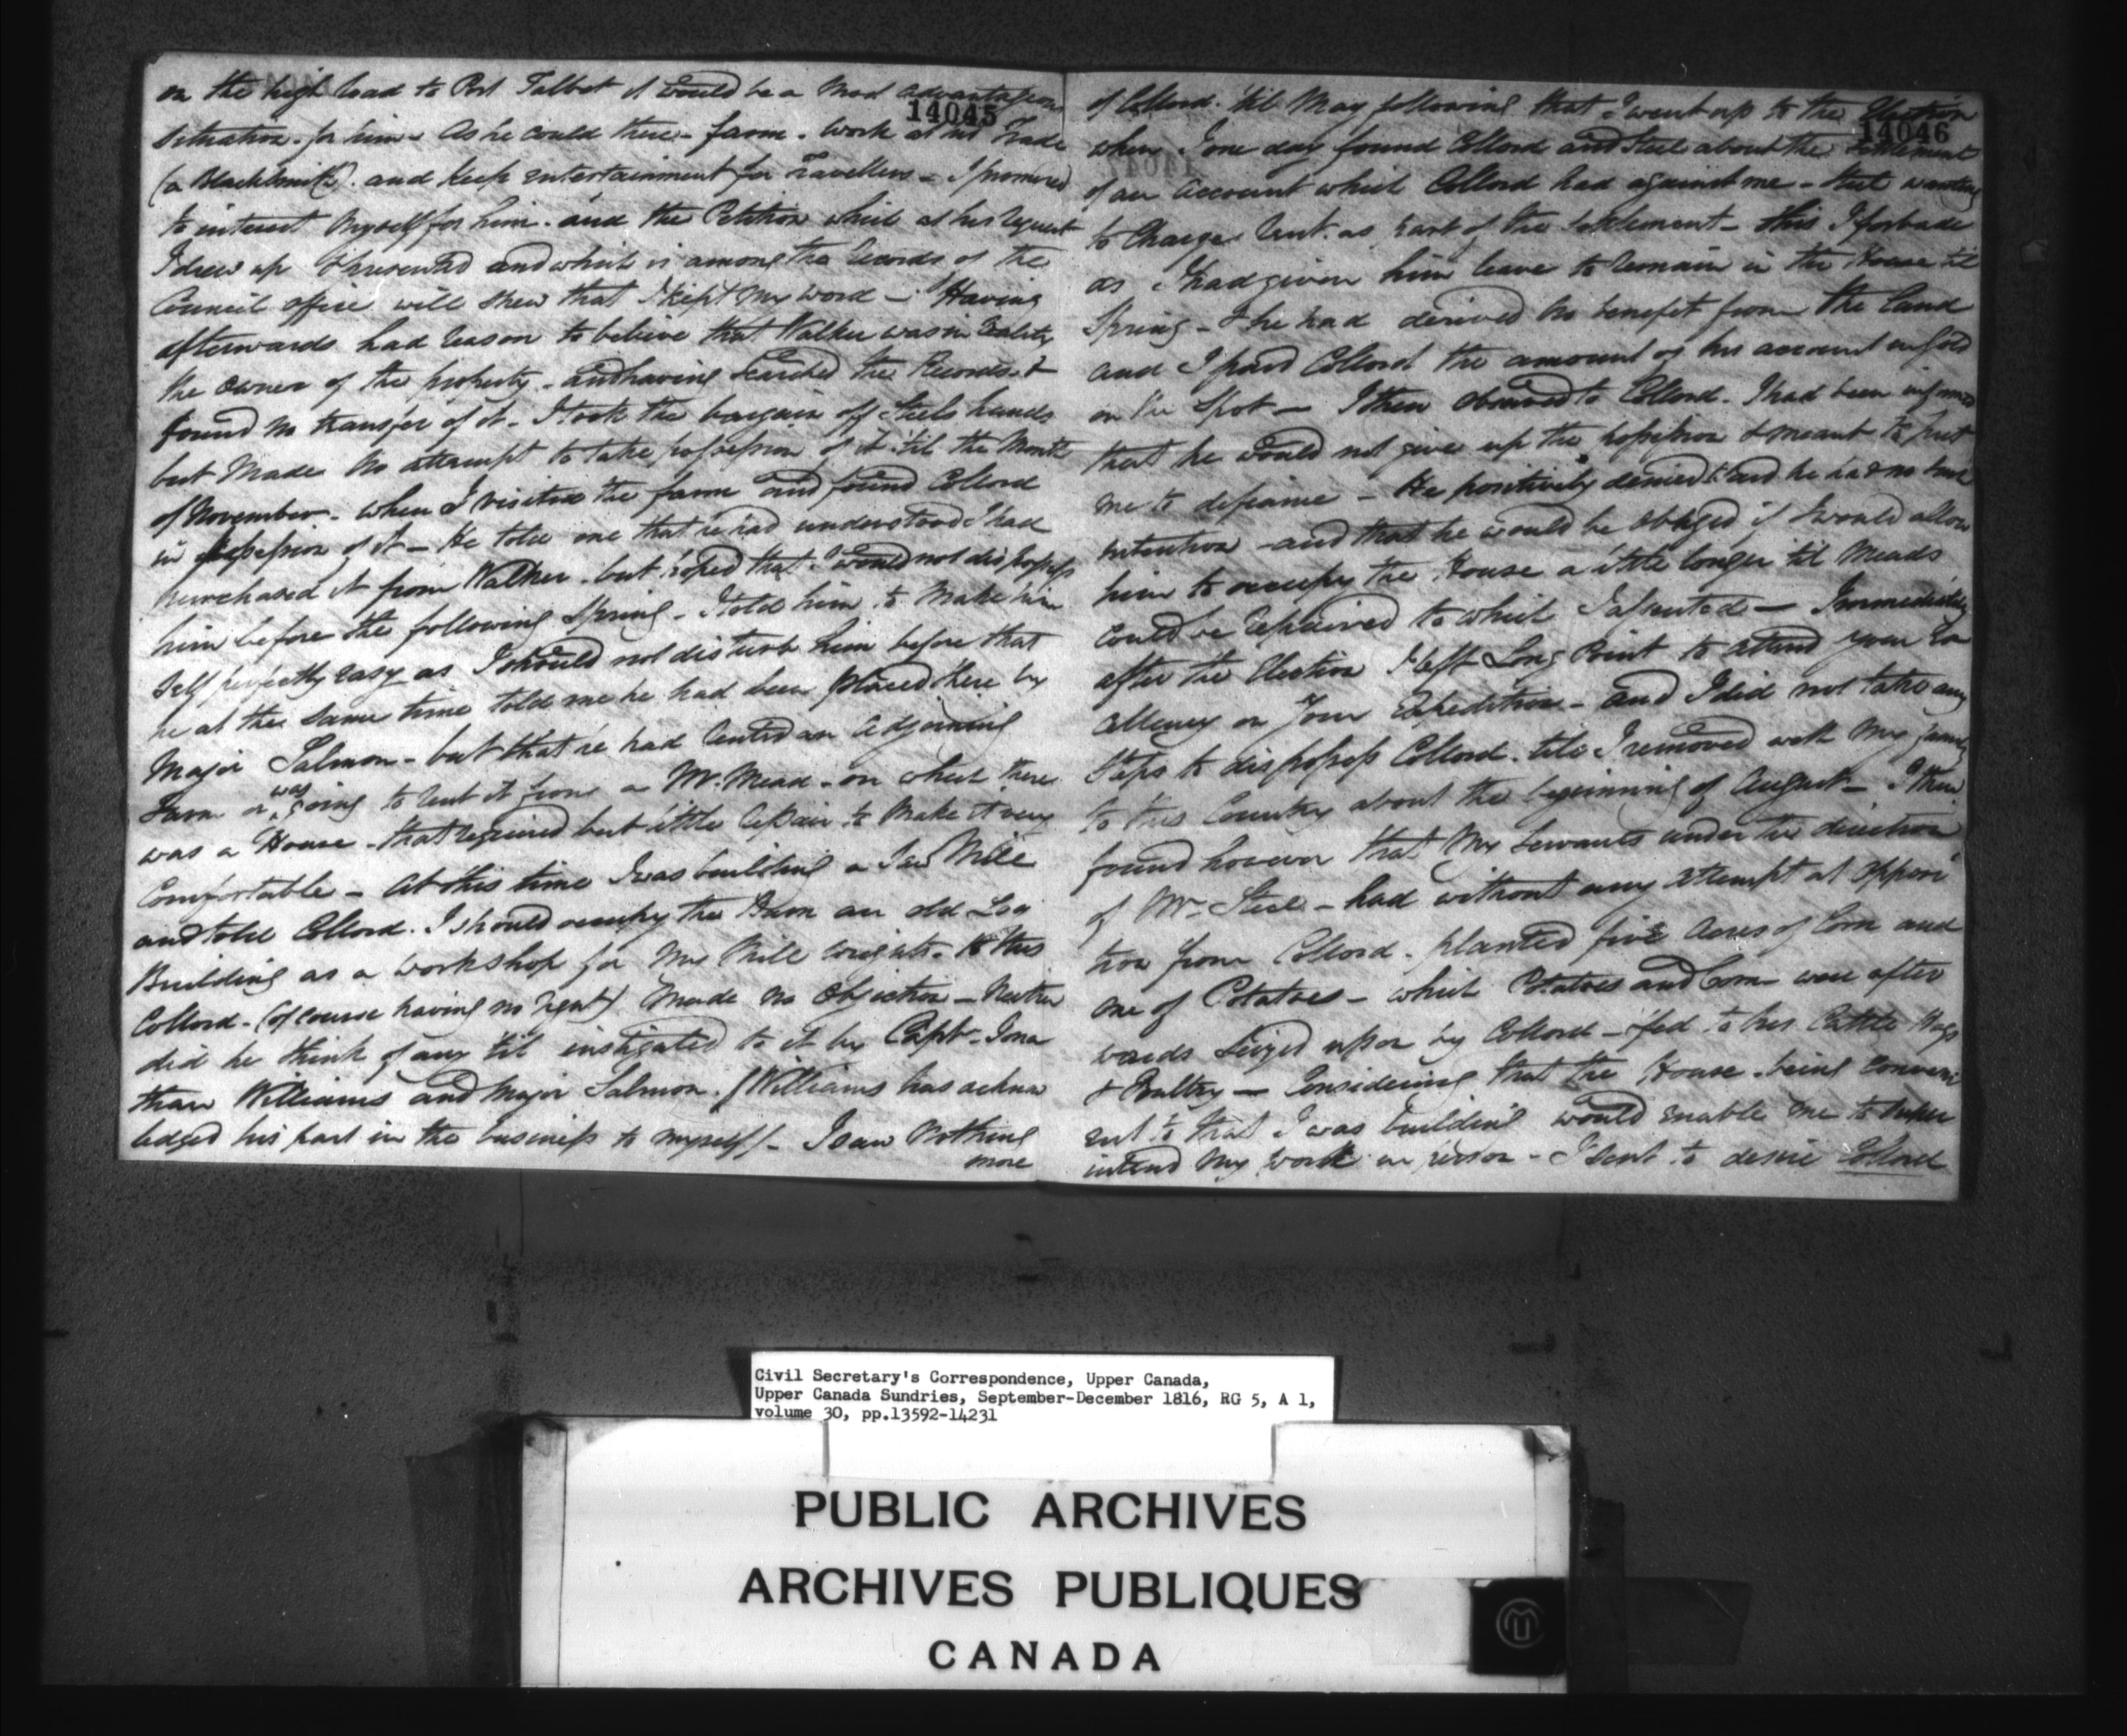 on the high road to Port Talbot it would be a most advantageous
14045
situation for him - As he could there - farm - work at his Trade
(a Blacksmith). and keep entertainment for Travellers - I promised
to interest myself for him. and the Petition which at his request
I drew up & presented and which is among the Records of the
Council office will shew that I kept my word - Having
afterwards had reason to believe that Walker was in reality
the owner of the property - and having searched the Records &
found no transfer of it - I took the bargain off Steels hands
but made no attempt to take possession of it 'til the Month
of November - when I visited the farm and found Collord
in possession of it - He told me that he had understood I had
purchased it from Walker - but hoped that I would not dispossess
him before the following Spring - I told him to make him
self perfectly easy as I should not disturb him before that
he at the same time told me he had been placed there by
Major Salmon - but that he had rented an adjoining
Farm or was going to rent it from a Mr. Mead - on which there
was a House - that required but little repair to make it very
Comfortable - At this time I was building a Saw Mill
and told Collord. I should occupy the Barn an old Log
Building as a workshop for my Mill wrights - to this
Collord - (of course having no right) made no objection - Neither
did he think of any 'til instigated to it by Capt. Jona
than Williams and Major Salmon. (Williams has acknow
ledged his part in the business to myself) - I saw nothing
more
of Collord. 'til May following that I went up to the Election
14046
when I one day found Collord and Steel about the settlement
of an account which Collord had against me - Steel wanting
to Charge rent as part of the settlement - this I forbade
as I had given him leave to remain in the House 'til
Spring - & he had derived no benefit from the Land
and I paid Collord the amount of his account in gold
on the spot - I then observed to Collord. I had been informed
that he would not give up the possession & meant to put
me to defiance - He positively denied it and he had no such
intention - and that he would be obliged if I would allow
him to occupy the House a little longer 'til Meads
could be repaired to which I assented - Immediately
after the Election I left Long Point to attend your Ex
cellency on your Expedition - and I did not take any
steps to dispossess Collord. till I removed with my family
to this Country about the beginning of August - I then
found however that my Servants under the direction
of Mr. Steel - had without any attempt at opposi
tion from Collord - planted five Acres of Corn and
one of Potatoes - which Potatoes and Corn were after
wards seized upon by Collord - fed to his Cattle Hogs
& Poultry - Considering that the House being conveni
ent to that I was building would enable me to super
intend my work in person - I sent to desire Collord
Civil Secretary's Correspondence, Upper Canada,
Upper Canada Sundries, September-December 1816, RG 5, A 1,
volume 30, pp.13592-14231
PUBLIC ARCHIVES
ARCHIVES PUBLIQUES
CANADA